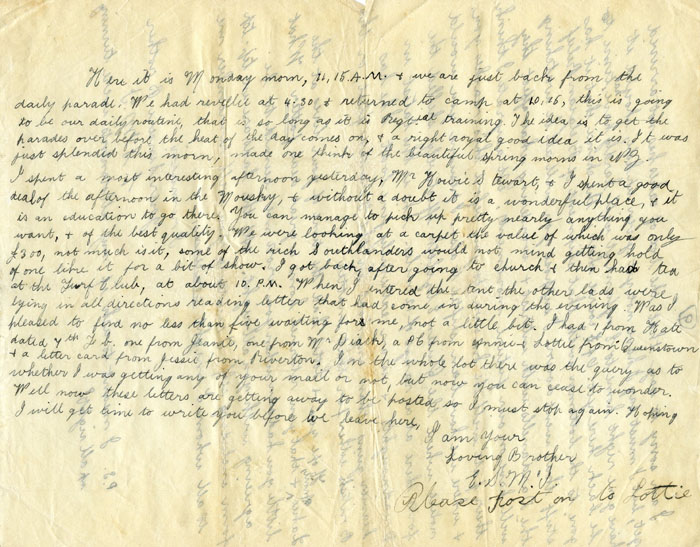 Here it is Monday morn, 11,15 A.M. & we are just back from the
daily parade. We had reveilie at 4.30, & returned to camp at 10.15, this is going
to be our daily routine, that is so long as it is Regtal training. The idea is to get the
parades over before the heat of the day comes on, & a right royal good idea it is. It was
just splendid this morn, made one think of the beautiful spring morns in N.Z.
I spent a most interesting afternoon yesterday, Mr Howie Stewart, & I spent a good
deal of the afternoon in the Mousky, & without a doubt it is a wonderful place, & it
is an education to go there. You can manage to pick up pretty nearly anything you
want, & of the best quality. We were looking at a carpet the value of which was only
£300, not much is it, some of the rich Southlanders would not mind getting hold
of one like it for a bit of show. I got back, after going to church & then had tea
at the Turf Club, at about 10. P.M. When I intered the tent the other lads were
lying in all directions reading letter that had come in during the evening. Was I
pleased to find no less than five waiting for me, not a little bit. I had 1 from Kate
dated 7th Feb. one from Jeanie, one from Mr, a PC from & Lottie from Queenstown
& a letter card from Jessie from Riverton. In the whole lot there was the query as to
whether I was getting any of your mail or not, but now you can cease to wonder.
Well now these letters are getting away to be posted so I must stop again. Hoping
I will get time to write you before we leave here,
I am Your
Loving Brother
Please post on to Lottie